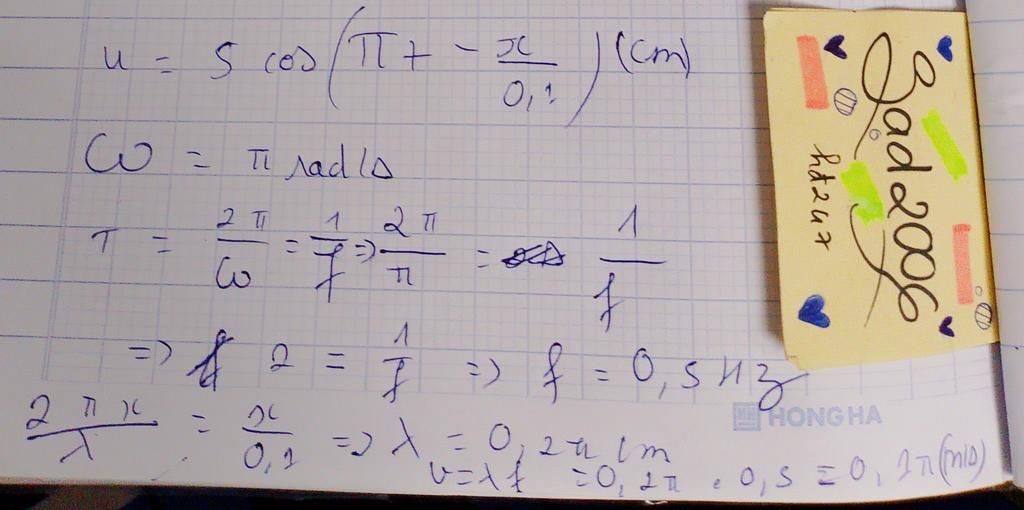 u = 5 cos(πt - x/0,1) (cm)
ω = π rad/s
T = 2π/ω = 1/f => 2π/π = 1/f
=> 2 = 1/f => f = 0,5 Hz
2πx/λ = x/0,1 => λ = 0,2π cm
v = λf = 0,2π . 0,5 = 0,1π (m/s)
HONG HA
Sad2006
hd247